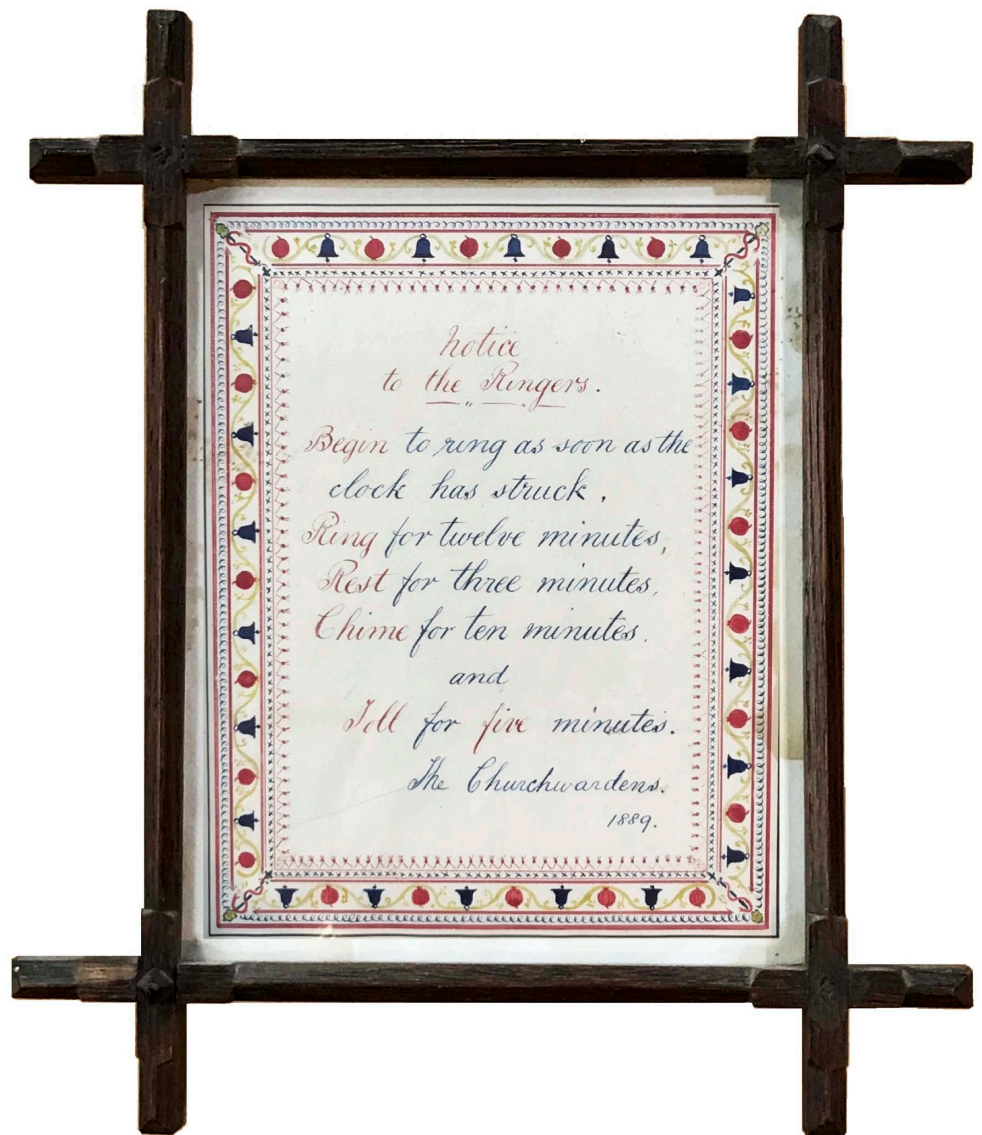 Notice
to the Ringers.
Begin to ring as soon as the
clock has struck,
Ring for twelve minutes,
Rest for three minutes,
Chime for ten minutes.
and
Toll for five minutes.
The Churchwardens.
1889.